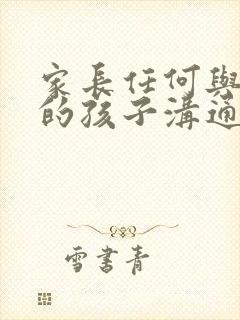 家長任何與
的孩子溝通
雪書青